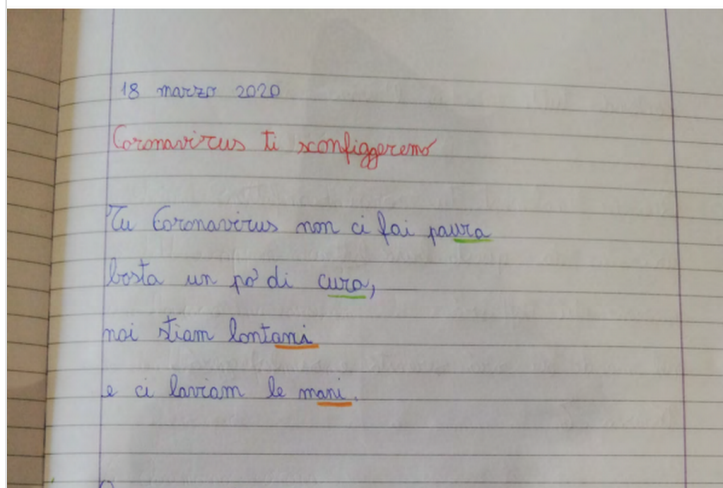 18 marzo 2020
Coronavirus ti sconfiggeremo
Tu Coronavirus non ci fai paura
basta un po' di cura,
noi stiam lontani
e ci laviam le mani.